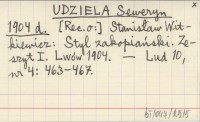 UDZIELA Seweryn
1904 d. [Rec. o:] Stanisław Wit-
kiewicz: Styl zakopiański. Ze-
szyt I. Lwów 1904. — Lud 10,
nr 4: 463-467.